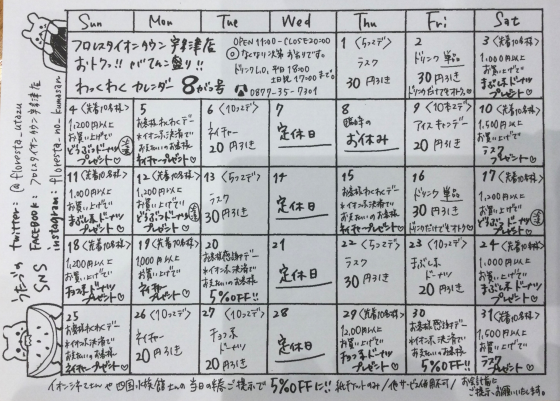 Sun Mon Tue Wed Thu Fri Sat
フロレスタイオンタウン宇多津店
おトク!!がてんこ盛り!!
わっくわく カレンダー 8がつ号
OPEN 11:00-CLOSE 20:00
なくなり次第 お売りです。
ドリンクL.O. 平日 18:00
土日祝 17:00まで
0877-35-7301
1 <5コデ>
ラスク
30円引き
2
ドリンク 単品
30円引き
ドリンクだけでもOK♡
3 <先着10名様>
1,000円以上
お買い上げで
まぶし系ドーナツ
プレゼント♡
4 <先着10名様>
1,200円以上
お買い上げで
どうぶつドーナツ
プレゼント♡
5
お客様わくわくデー
※イオン系決済で
お支払いのお客様
ネイチャープレゼント♡
6 <10コデ>
ネイチャー
20円引き
7
定休日
8
臨時の
お休み
9 <10本デ>
アイスキャンデー
20円引き
10 <先着10名様>
1,500円以上
お買い上げで
ラスク
プレゼント♡
11 <先着10名様>
1,000円以上
お買い上げで
まぶし系ドーナツ
プレゼント♡
12 <先着10名様>
1,200円以上
お買い上げで
どうぶつドーナツ
プレゼント♡
13 <5コデ>
ラスク
30円引き
14
定休日
15
お客様わくわくデー
※イオン系決済で
お支払いのお客様
ネイチャープレゼント♡
16
ドリンク 単品
30円引き
ドリンクだけでもOK♡
17 <先着10名様>
1,200円以上
お買い上げで
どうぶつドーナツ
プレゼント♡
18 <先着10名様>
1,200円以上
お買い上げで
チョコ系ドーナツ
プレゼント♡
19 <先着10名様>
1,000円以上
お買い上げで
ネイチャー
プレゼント♡
20
お客様感謝デー
※イオン系決済で
お支払いのお客様
5%OFF!!
21
定休日
22 <5コデ>
ラスク
30円引き
23 <10コデ>
まぶし系
ドーナツ
20円引き
24 <先着10名様>
1,200円以上
お買い上げで
チョコ系ドーナツ
プレゼント♡
25
お客様わくわくデー
※イオン系決済で
お支払いのお客様
ネイチャープレゼント♡
26 <10コデ>
ネイチャー
20円引き
27 <10コデ>
チョコ系
ドーナツ
20円引き
28
定休日
29 <先着10名様>
1,200円以上
お買い上げで
チョコ系ドーナツ
プレゼント♡
30
お客様感謝デー
※イオン系決済で
お支払いのお客様
5%OFF!!
31 <先着10名様>
1,500円以上
お買い上げで
ラスク
プレゼント♡
イオンシネマさんや四国水族館さんの当日の半券ご提示で5%OFFに!!
紙チケットのみ/他サービス併用不可/
お会計前に
ご提示、お願いいたします。
うたづの
SNS
twitter: @floresta_utazu
FACEBOOK: フロレスタイオンタウン宇多津店
instagram: floresta_no_kumasan